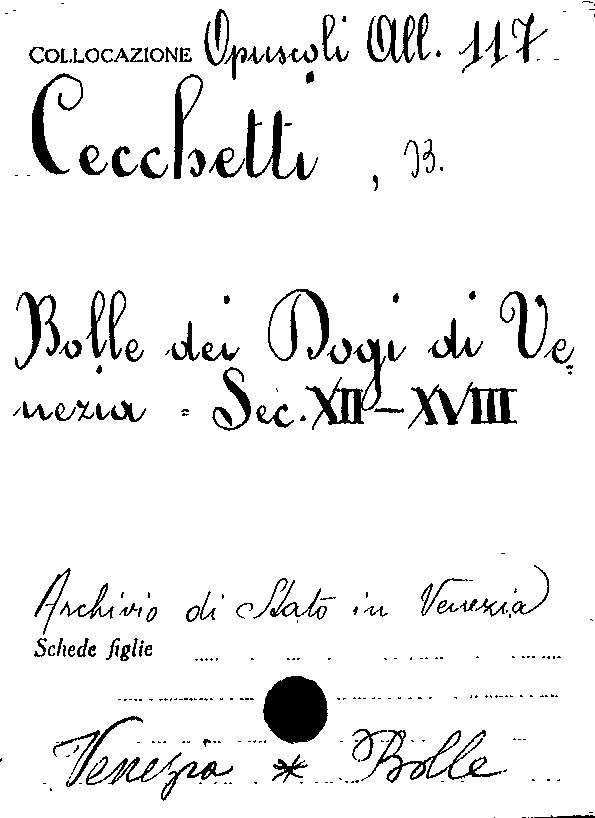 COLLOCAZIONE Opuscoli All. 117
Cecchetti, B.
Bolle dei Dogi di Ve=
nezia = Sec. XII – XVIII
Archivio di Stato in Venezia)
Schede figlie
Venezia * Bolle